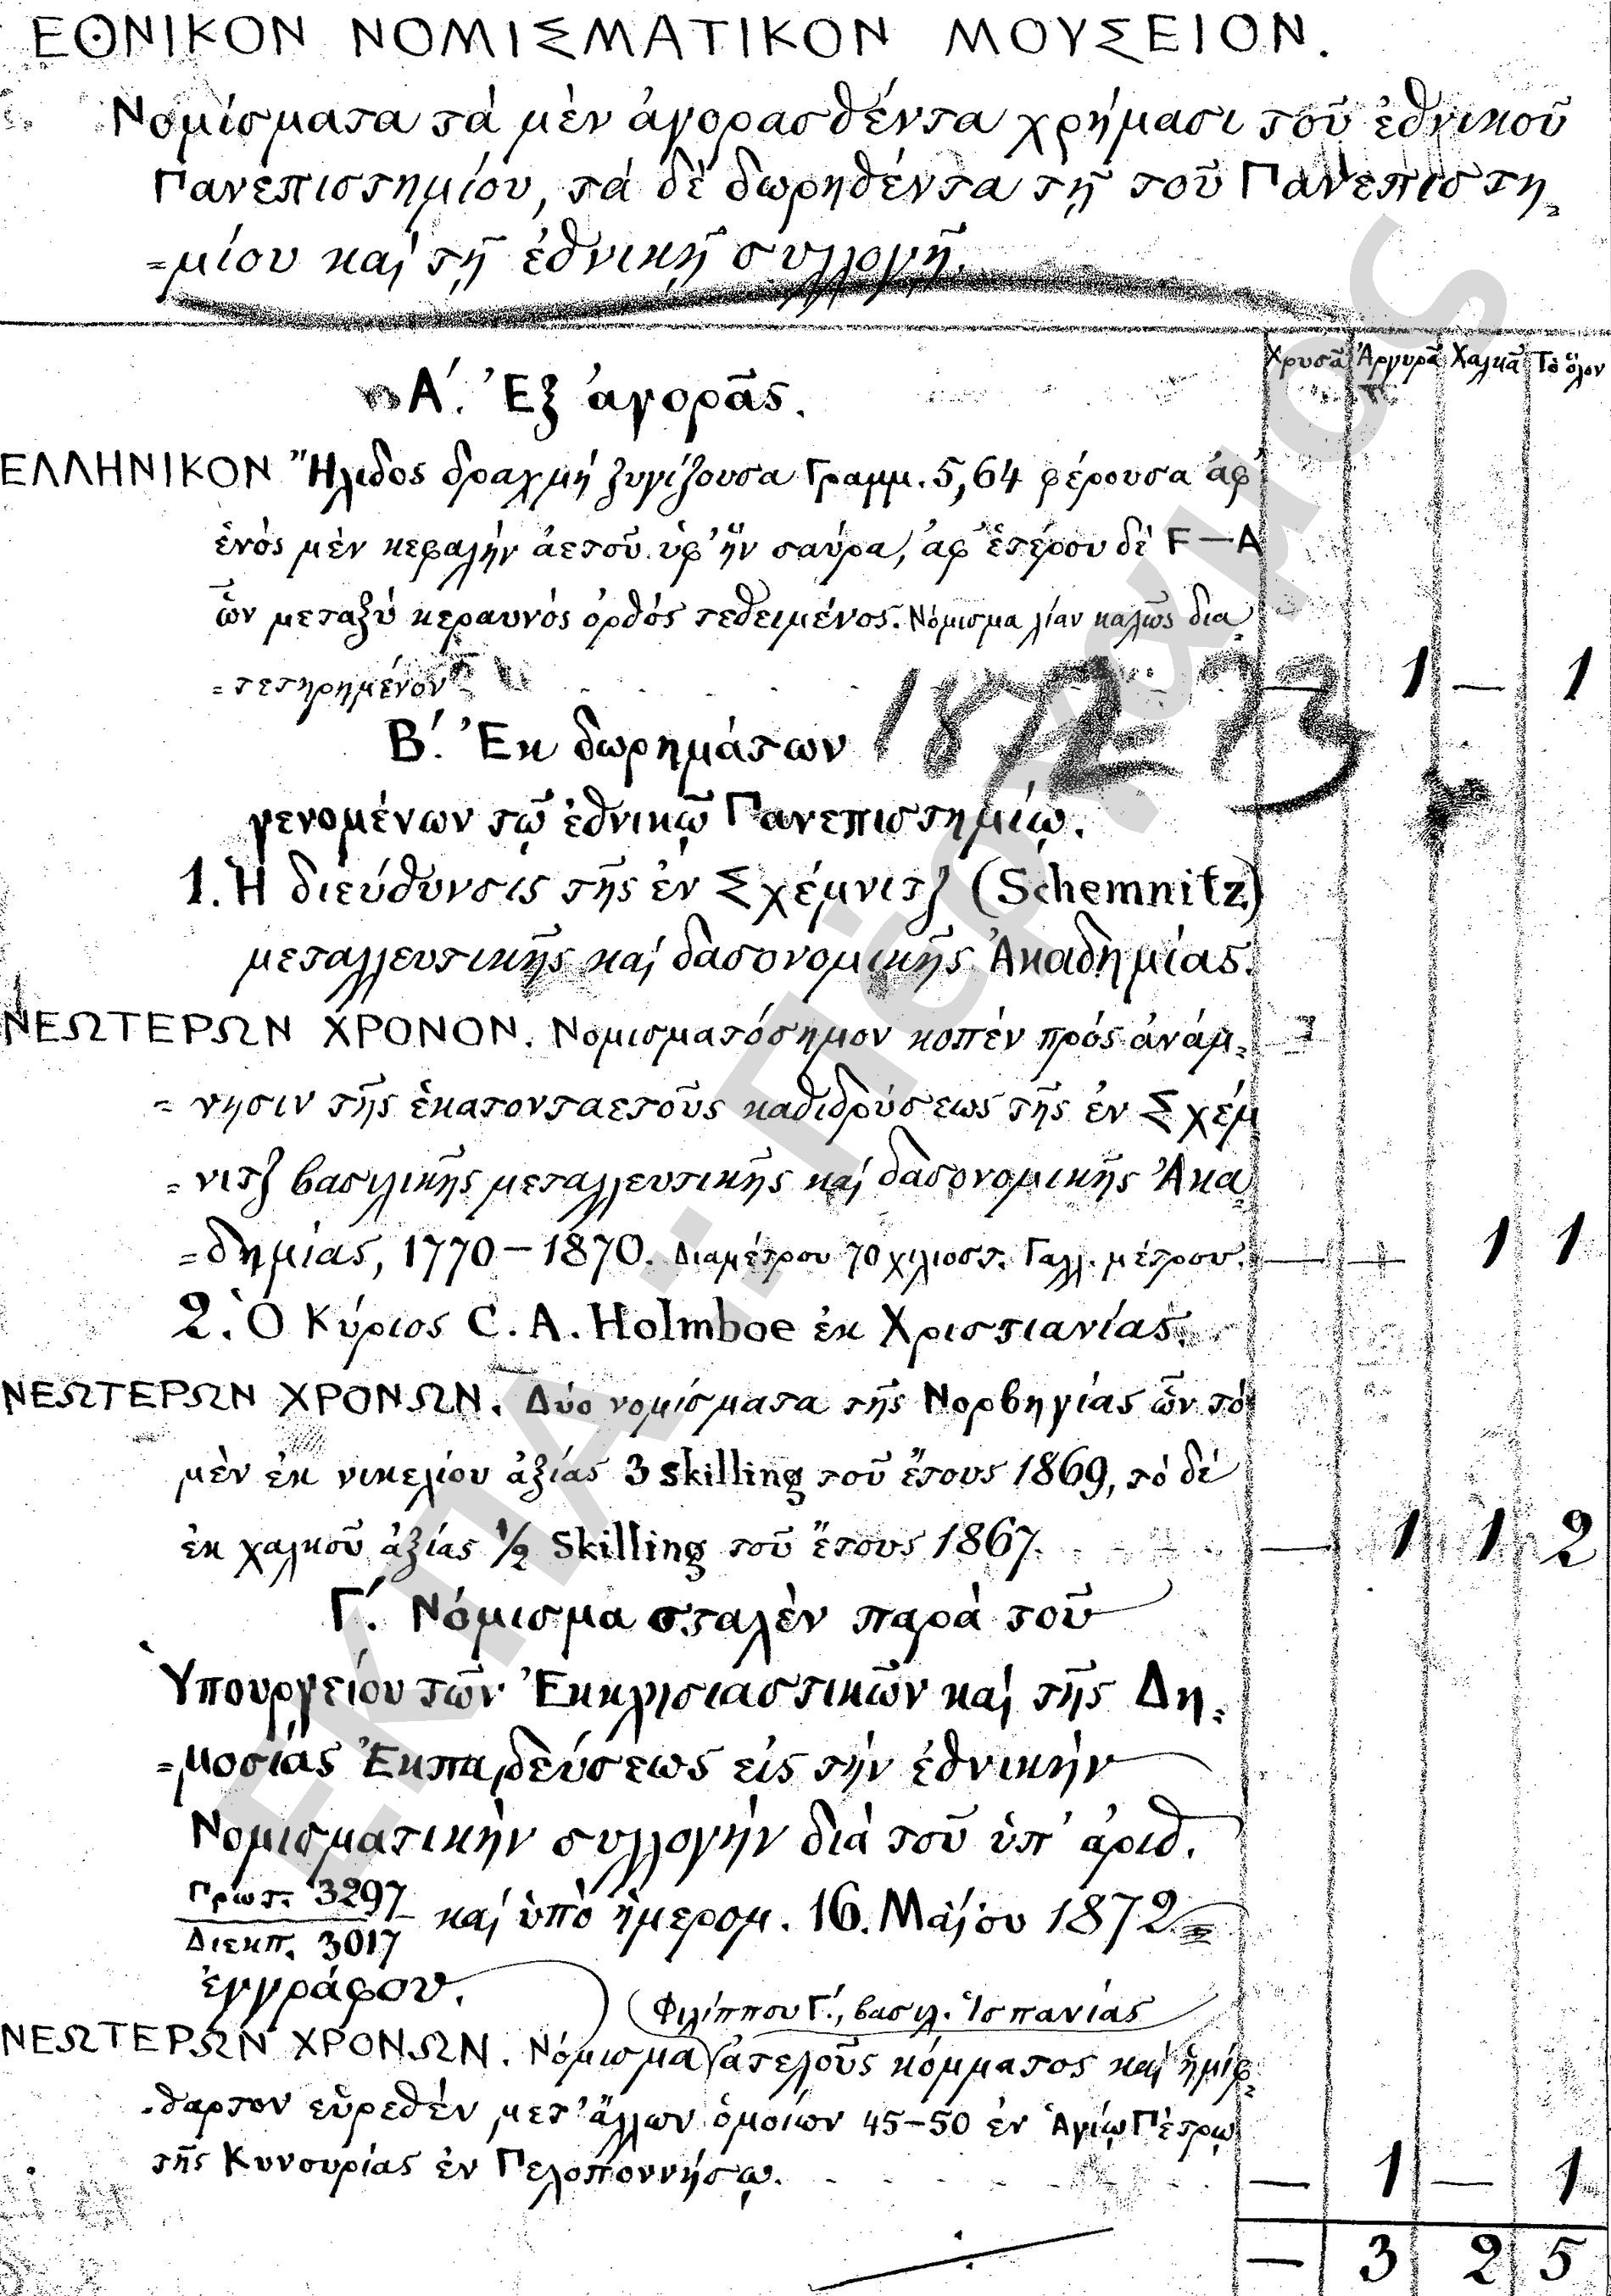 ΕΘΝΙΚΟΝ ΝΟΜΙΣΜΑΤΙΚΟΝ ΜΟΥΣΕΙΟΝ.
Νομίσματα τὰ μὲν ἀγορασθέντα χρήμασι τοῦ ἐθνικοῦ
Πανεπιστημίου, τὰ δὲ δωρηθέντα τῇ τοῦ Πανεπιστη=
=μίου καὶ τῇ ἐθνικῇ συλλογῇ.
Χρυσᾶ Ἀργυρᾶ Χαλκᾶ Τὸ ὅλον
Α΄. Ἐξ ἀγορᾶς.
ΕΛΛΗΝΙΚΟΝ Ἤλιδος δραχμὴ ζυγίζουσα Γραμμ. 5,64 φέρουσα ἀφ'
ἑνὸς μὲν κεφαλὴν ἀετοῦ ὑφ' ἣν σαύρα, ἀφ' ἑτέρου δὲ F—A
ὧν μεταξὺ κεραυνὸς ὀρθὸς τεθειμένος. Νόμισμα λίαν καλῶς δια
=τετηρημένον — 1 — 1
Β΄. Ἐκ δωρημάτων 1872-73
γενομένων τῷ ἐθνικῷ Πανεπιστημίῳ.
1. Ἡ διεύθυνσις τῆς ἐν Σχέμνιτζ (Schemnitz)
μεταλλευτικῆς καὶ δασονομικῆς Ἀκαδημίας.
ΝΕΩΤΕΡΩΝ ΧΡΟΝΟΝ. Νομισματόσημον κοπὲν πρὸς ἀνάμ=
=νησιν τῆς ἑκατονταετοῦς καθιδρύσεως τῆς ἐν Σχέμ
=νιτζ βασιλικῆς μεταλλευτικῆς καὶ δασονομικῆς Ἀκα=
=δημίας, 1770–1870. Διαμέτρου 70 χιλιοστ. Γαλλ. μέτρου. — — 1 1
2. Ὁ Κύριος C. A. Holmboe ἐκ Χριστιανίας.
ΝΕΩΤΕΡΩΝ ΧΡΟΝΩΝ. Δύο νομίσματα τῆς Νορβηγίας ὧν τὸ
μὲν ἐκ νικελίου ἀξίας 3 skilling τοῦ ἔτους 1869, τὸ δὲ
ἐκ χαλκοῦ ἀξίας ½ Skilling τοῦ ἔτους 1867. — 1 1 2
Γ΄. Νόμισμα σταλὲν παρὰ τοῦ
Ὑπουργείου τῶν Ἐκκλησιαστικῶν καὶ τῆς Δη=
=μοσίας Ἐκπαιδεύσεως εἰς τὴν ἐθνικὴν
Νομισματικὴν συλλογὴν διὰ τοῦ ὑπ' ἀριθ.
Πρωτ. 3297
Διεκπ. 3017 καὶ ὑπὸ ἡμερομ. 16. Μαΐου 1872
ἐγγράφου.
Φιλίππου Γ΄., βασιλ. Ἰσπανίας
ΝΕΩΤΕΡΩΝ ΧΡΟΝΩΝ. Νόμισμα ἀτελοῦς κόμματος καὶ ἡμίφ=
=θαρτον εὑρεθὲν μετ' ἄλλων ὁμοίων 45–50 ἐν Ἁγίῳ Πέτρῳ
τῆς Κυνουρίας ἐν Πελοποννήσῳ. — 1 — 1
— 3 2 5